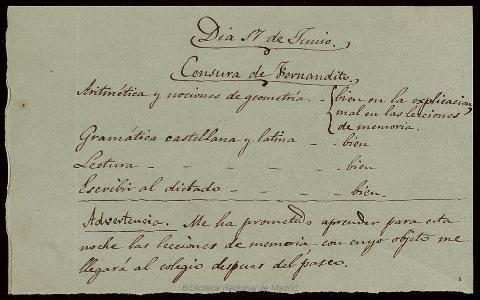 Día 17 de Junio.
Censura de Fernandito.
Aritmética y nociones de geometría. - { bien en la explicacion,
mal en las lecciones
de memoria.
Gramática castellana y latina - - bien
Lectura - - - - - bien
Escribir al dictado - - - - bien.
Advertencia. Me ha prometido aprender para esta
noche las lecciones de memoria con cuyo objeto me
llegará al colegio despues del paseo.
Biblioteca Regional de Madrid